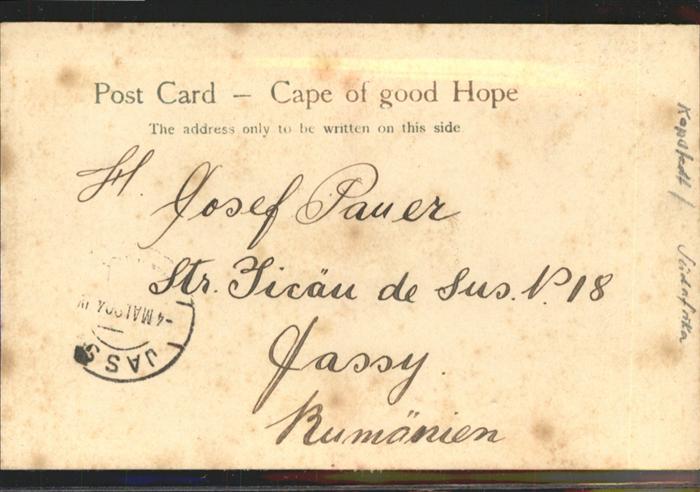 Post Card — Cape of good Hope
The address only to be written on this side
H. Josef Pauer
Str. Ticău de Sus. N. 18
Jassy.
Rumänien
-4 MAI 904
JASSY
Kapstadt / Südafrika